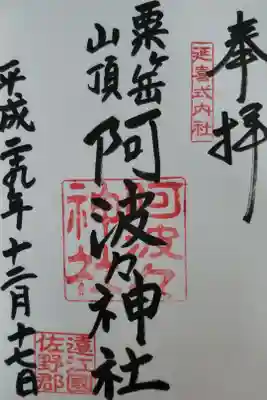 奉拝
延喜式内社
粟ヶ岳
山頂
阿波々神社
阿波々神社
平成二十九年十二月十七日
遠江國
佐野郡